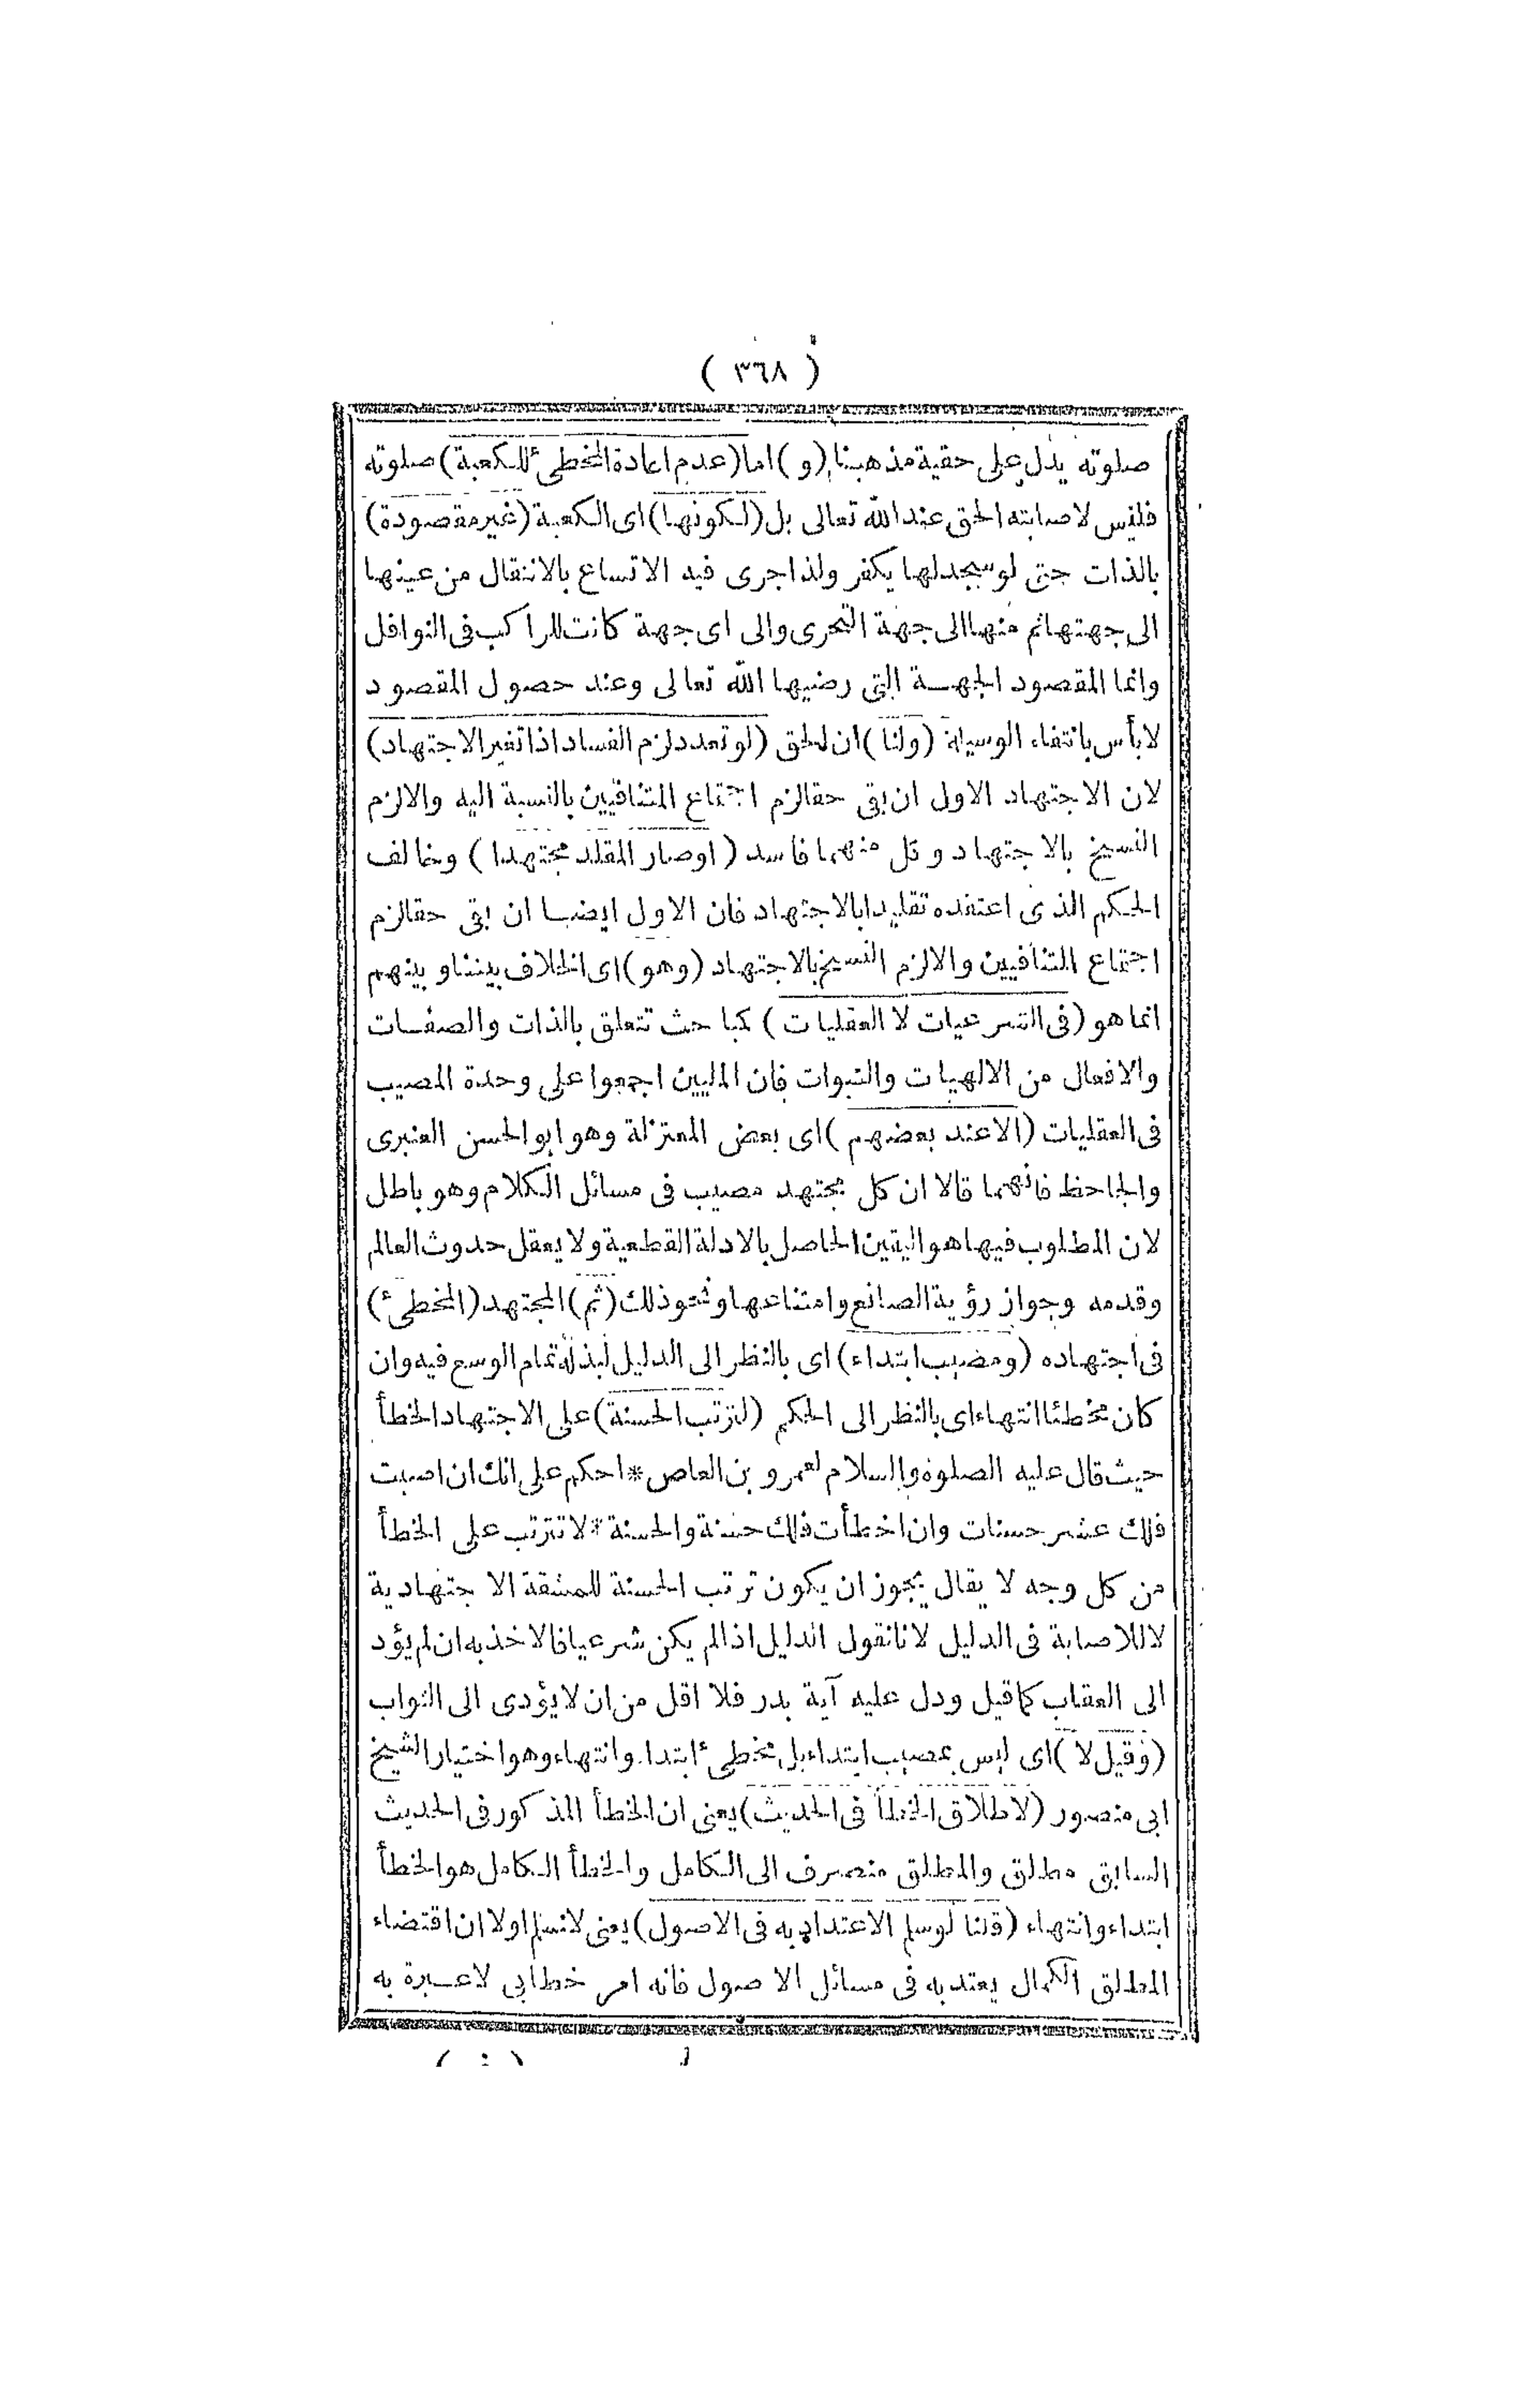 ( ٣٦٨ )
صلوته يدل على حقية مذهبنا (و) اما (عدم اعادة المخطئ للكعبة) صلوته
فليس لاصابته الحق عند الله تعالى بل (لكونها) اى الكعبة (غير مقصودة)
بالذات حتى لو سجد لها يكفر ولذا جرى فيه الاتساع بالانتقال من عينها
الى جهتها ثم منها الى جهة التحرى والى اى جهة كانت للراكب فى النوافل
وانما المقصود الجهة التى رضيها الله تعالى وعند حصول المقصود
لا بأس بانتفاء الوسيلة (ولنا) ان الحق (لو تعدد لزم الفساد اذا تغير الاجتهاد)
لان الاجتهاد الاول ان بقى حقا لزم اجتماع المتنافيين بالنسبة اليه والا لزم
النسخ بالاجتهاد وكل منهما فاسد (او صار المقلد مجتهدا) وخالف
الحكم الذى اعتقده تقليدا بالاجتهاد فان الاول ايضا ان بقى حقا لزم
اجتماع المتنافيين والا لزم النسخ بالاجتهاد (وهو) اى الخلاف بيننا وبينهم
انما هو (فى الشرعيات لا العقليات) كمباحث تتعلق بالذات والصفات
والافعال من الالهيات والنبوات فان المليين اجمعوا على وحدة المصيب
فى العقليات (الا عند بعضهم) اى بعض المعتزلة وهو ابو الحسن العنبرى
والجاحظ فانهما قالا ان كل مجتهد مصيب فى مسائل الكلام وهو باطل
لان المطلوب فيها هو اليقين الحاصل بالادلة القطعية ولا يعقل حدوث العالم
وقدمه وجواز رؤية الصانع وامتناعها ونحو ذلك (ثم) المجتهد (المخطئ)
فى اجتهاده (ومصيب ابتداء) اى بالنظر الى الدليل لبذله تمام الوسع فيه وان
كان مخطئا انتهاء اى بالنظر الى الحكم (لترتب الحسنة) على الاجتهاد الخطأ
حيث قال عليه الصلوة والسلام لعمرو بن العاص * احكم على انك ان اصبت
فلك عشر حسنات وان اخطأت فلك حسنة والحسنة * لا تترتب على الخطأ
من كل وجه لا يقال يجوز ان يكون ترتب الحسنة للمشقة الاجتهادية
لا للاصابة فى الدليل لانا نقول الدليل اذا لم يكن شرعيا فالاخذ به ان لم يؤد
الى العقاب كما قيل ودل عليه آية بدر فلا اقل من ان لا يؤدى الى الثواب
(وقيل لا) اى ليس بمصيب ابتداء بل مخطئ ابتداء وانتهاء وهو اختيار الشيخ
ابى منصور (لاطلاق الخطأ فى الحديث) يعنى ان الخطأ المذكور فى الحديث
السابق مطلق والمطلق منصرف الى الكامل والخطأ الكامل هو الخطأ
ابتداء وانتهاء (قلنا لو سلم الاعتداد به فى الاصول) يعنى لا نسلم اولا ان اقتضاء
المطلق الكمال يعتد به فى مسائل الاصول فانه امر خطابى لا عبرة به